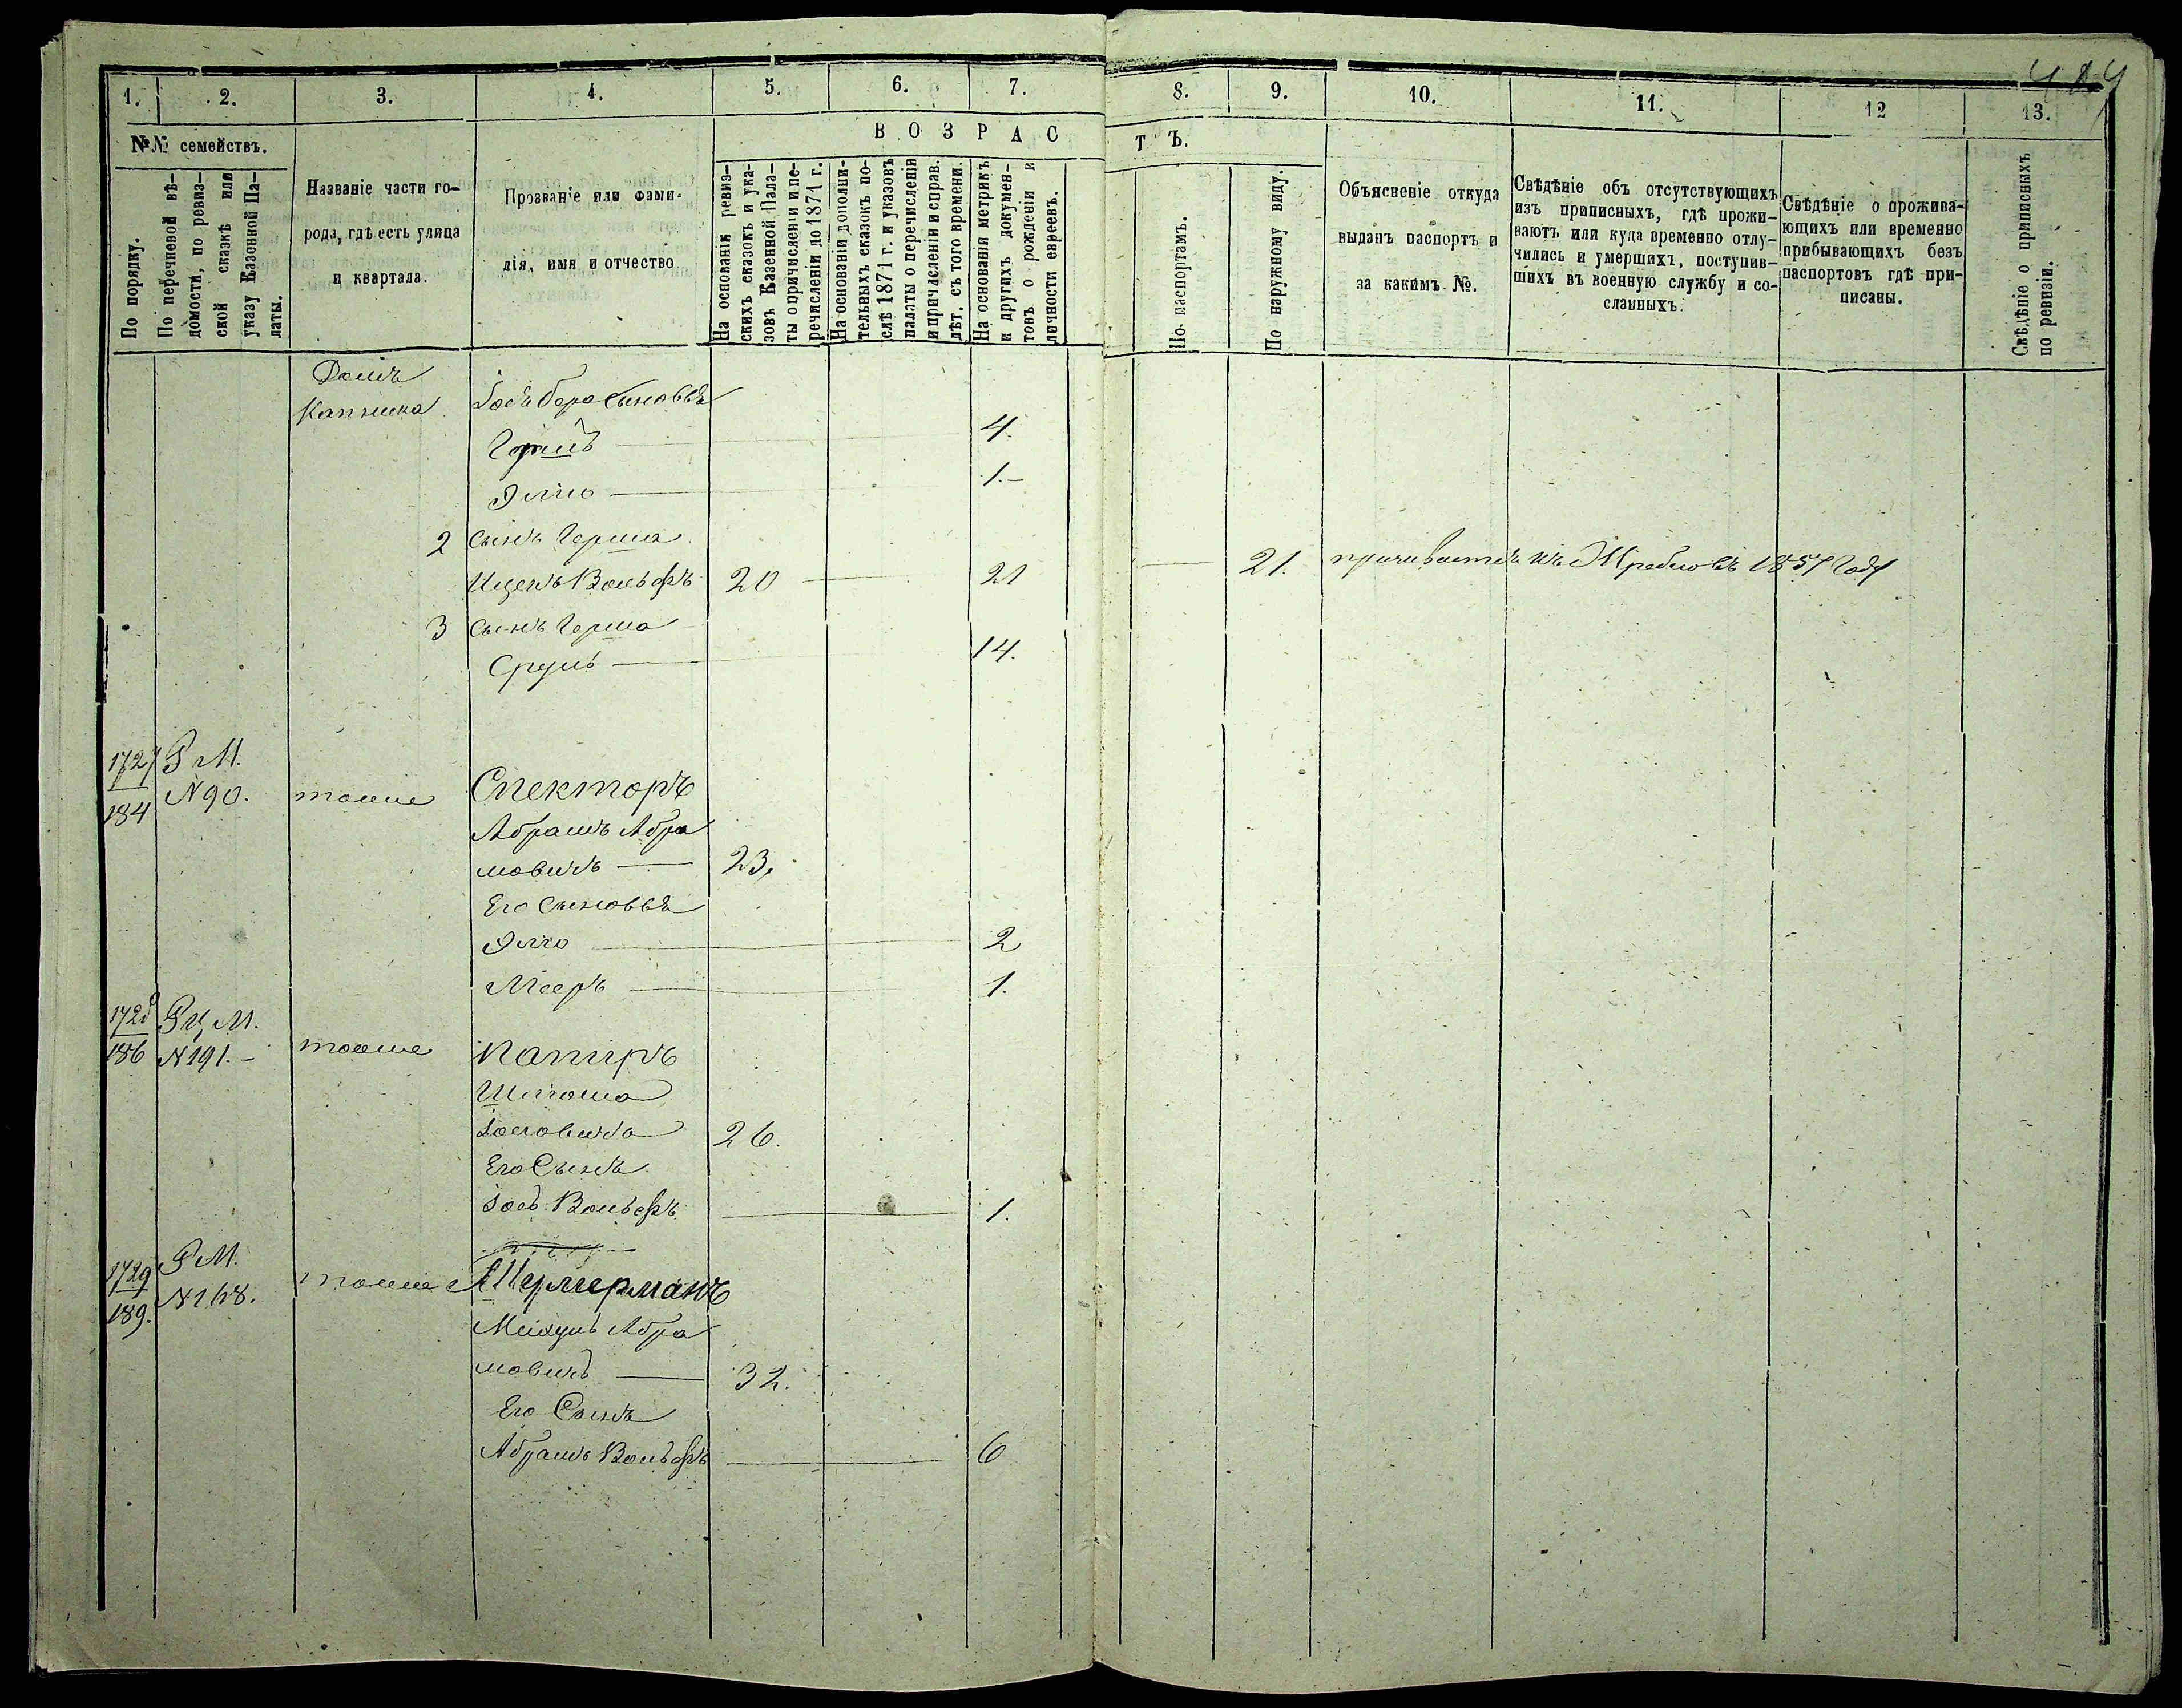 1. 2. 3. 4. 5. 6. 7. 8. 9. 10. 11. 12 13.
№№ семействъ.
ВОЗРАСТЪ.
По порядку.
По перечневой вѣ-
домости, по ревиз-
ской сказкѣ или
указу Казенной Па-
латы.
Названіе части го-
рода, гдѣ есть улица
и квартала.
Прозваніе или фами-
лія, имя и отчество
На основаніи ревиз-
скихъ сказокъ и ука-
зовъ Казенной Пала-
ты о причислени и пе-
речислени до 1871 г.
На основаніи дополни-
тельныхъ сказокъ по-
слѣ 1871 г. и указовъ
палаты о перечисленіи
и причисленіи и справ.
лѣт. съ того времени.
На основаніи метрикъ
и другихъ докумен-
товъ о рожденіи и
личности евреевъ.
По паспортамъ.
По наружному виду.
Объясненіе откуда
выданъ паспортъ и
за какимъ №.
Свѣдѣніе объ отсутствующихъ
изъ приписныхъ, гдѣ прожи-
ваютъ или куда временно отлу-
чились и умершихъ, поступив-
шихъ въ военную службу и со-
сланныхъ.
Свѣдѣніе о прожива-
ющихъ или временно
прибывающихъ безъ
паспортовъ гдѣ при-
писаны.
Свѣдѣніе о приписныхъ
по ревизіи.
Домъ
Сыновья
4.
Элио 1.-
2 Сынъ Герша
Ицекъ Вольфъ 20 21 21. 1857 Году
3 Сынъ Герша
Сруль 14.
1727 Р М.
184 N 90. тоже Спекторъ
Абрамъ Абра
мовичъ 23.
Его Сыновья
Элио 2
Мееръ 1.
1728 М.
186 N 191.- тоже Папиръ
Шлиома
26.
Его Сынъ
Вольфъ 1.
1729 Р М.
189. N 168. тоже
Абра
мовичъ 32.
Его Сынъ
Абрамъ Вольфъ 6